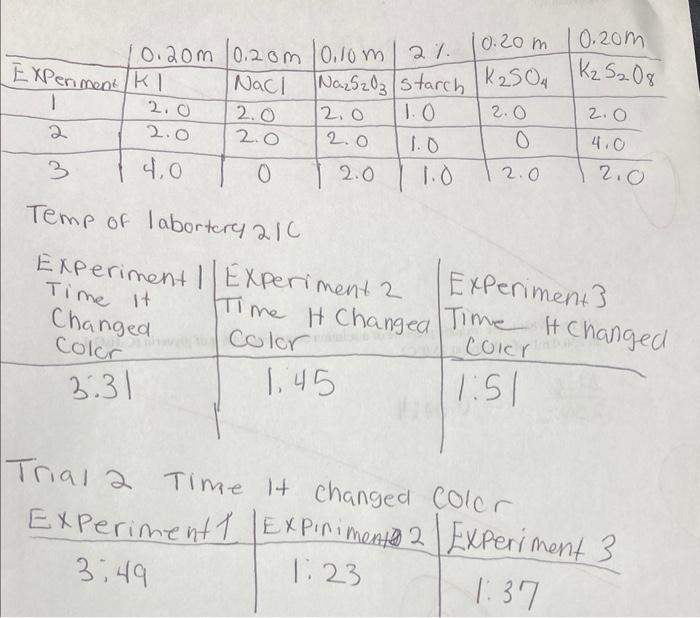 0.20m 0.20m 0.10m 2%. 0.20m 0.20m
Experiment KI NaCl Na2S2O3 Starch K2SO4 K2S2O8
1 2.0 2.0 2.0 1.0 2.0 2.0
2 2.0 2.0 2.0 1.0 0 4.0
3 4.0 0 2.0 1.0 2.0 2.0
Temp of labortery 21C
Experiment 1 Experiment 2 Experiment 3
Time It Time It Changed Time It Changed
Changed Color Color
Color
3:31 1.45 1:51
Trial 2 Time It changed color
Experiment 1 Expiriment 2 Experiment 3
3:49 1:23 1:37